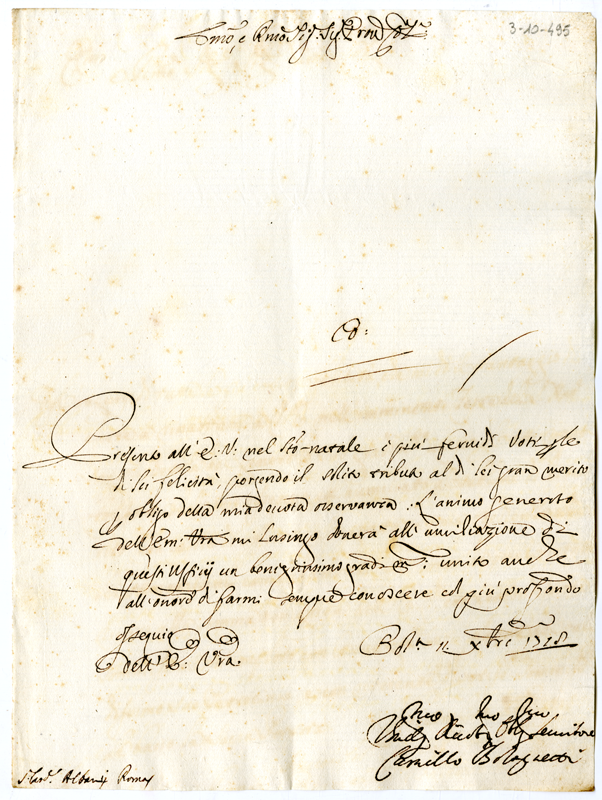 3-10-495
Emo, e Rmo Sig. Sig. Pron
Presento all' E. V. nel Sto natale i più fervidi Voti
di lei felicità, porgendo il solito tributo al di lei gran merito
obligo della mia devota osservanza. L'animo generoso
dell' Em. Vra mi lusingo donerà all' umiliazione di
questi Ufficij un benignissimo: unito anche
all' onore di farmi sempre conoscere col più profondo
ossequio
dell' E. Vra
Bola 11 Xbre 1718
Servitore
Camillo Bolognetti
S. Card. Albani Roma